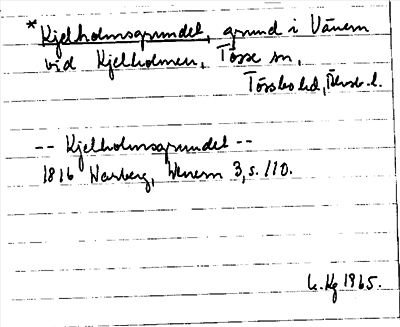 *Kjelholmsgrundet, grund i Vänern
vid Kjelholmen, Tösse sn,
Tössbo hd, Älvsb. l.
-- Kjelholmsgrundet --
1816 Warberg, Wenern 3, s. 110.
Kg 1965.